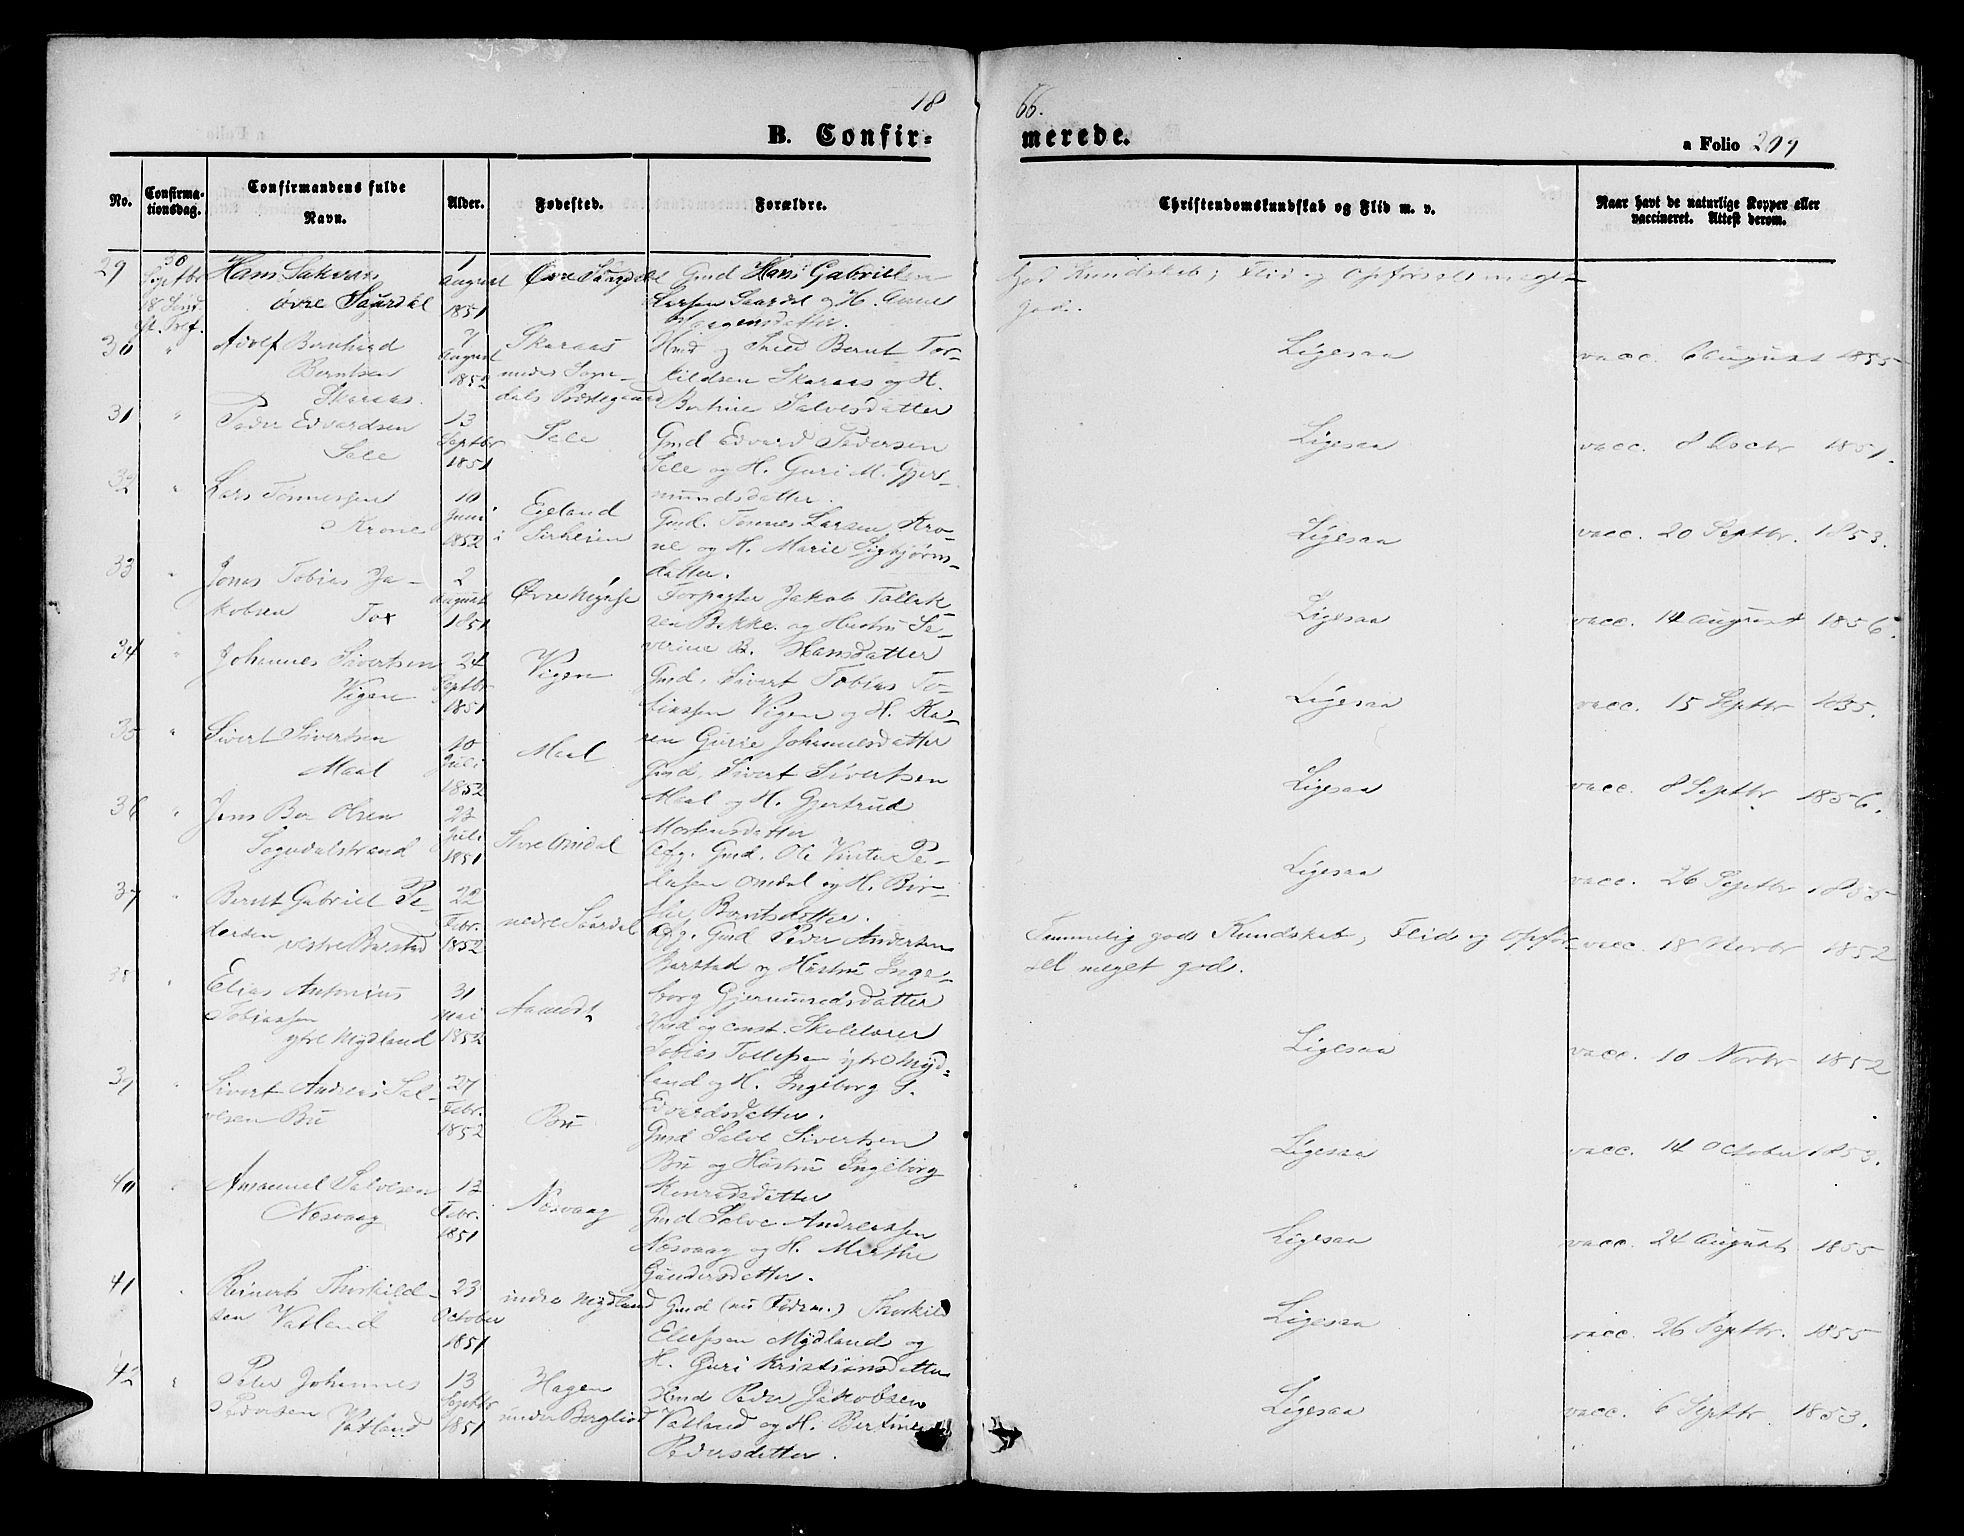 18 66.
B. Confir= merede.
a Folio 299
No.
Confirma-
tionsdag.
Confirmandens fulde
Navn.
Alder.
Fødested.
Forældre.
Christendomskundskab og Flid m. v.
Naar havt de naturlige Kopper eller
vaccineret. Attest derom.
29 30 Septbr 18 Hans øvre Saurdal 1 August 1851 Øvre Saurdal Gmd Hans Gabriel
God Kundskab, Flid og Opførsel meget
god.
30 " Adolf Bernhard
Berntsen
Skaraas.
7 August 1852
Skaraas
nedre Sogn-
dals Præstegaard
Hmd og Smed Bernt Tor-
kildsen Skaraas og H.
Bertine Salvesdatter
Ligesaa
vacc. 6 August 1855
31 " Peder Edvardsen
Sele
13 Septbr 1851
Sele
Gmd Edvard Pedersen
Sele og H. Guri M. Gjer-
mundsdatter.
Ligesaa
vacc. 8 Octbr 1851.
32 " Lars Tønnessen
Krone
10 Juni 1852
Egeland
i Sirheien
Gmd. Tønnes Larsen Kro-
ne og H. Marie Sigbjørns-
datter.
Ligesaa
vacc. 20 Septbr. 1853.
33 " Jonas Tobias Ja-
kobsen Tox
2 August 1851
Forpagter Jakob Tollik-
sen Bakke og Hustru Se-
verine B. Hansdatter
Ligesaa
vacc. 14 August 1856.
34 " Johannes Sivertsen
Vigen
24 Septbr 1851
Vigen
Gmd. Sivert Tobias To-
biassen Vigen og H. Ka-
ren Gurie Johannesdatter
Ligesaa
vacc. 15 Septbr 1855.
35 " Sivert Sivertsen
Maal
10 Juli 1852
Maal
Gmd. Sivert Sivertsen
Maal og H. Gjertrud
Mortensdatter
Ligesaa
vacc. 8 Septbr 1856.
36 " Jens Olsen
Sogndalstrand
23 Juli 1851
Store Omdal
Afg. Gmd. Ole Pe-
dersen Omdal og H. Bir-
the Berntsdatter.
Ligesaa
vacc. 26 Septbr 1855
37 " Bernt Gabriel Pe-
dersen vestre Barstad
22 Febr. 1852
nedre Saurdal
Afg. Gmd Peder Andersen
Barstad og Hustru Inge-
borg Gjermundsdatter
Temmelig god Kundskab, Flid og Opfør-
sel meget god.
vacc. 18 Novbr 1852
38 " Elias Antonius
Tobiassen
ytre Mydland
31 Mai 1852
Aamodt
Hmd og const. Skolelærer
Tobias Tollefsen ytre Myd-
land og H. Ingeborg S.
Edvardsdatter.
Ligesaa
vacc. 10 Novbr 1852
39 " Sivert Andreas Sal-
vesen Bu
27 Febr. 1852
Bu
Gmd Salve Sivertsen
Bu og Hustru Ingeborg
Konradsdatter
Ligesaa
vacc. 14 October 1853.
40 " Amanuel Salvesen
Nesvaag
13 Febr. 1851
Nesvaag
Gmd Salve Andreassen
Nesvaag og H. Marthe
Gundersdatter.
Ligesaa
vacc. 24 August 1855
41 " Reinert Thorkild-
sen Vatland
23 October 1851
indre Mydland
Gmd (nu Føderm.) Thorkild
Elefsen Mydland og
H. Guri Kristiansdatter
Ligesaa
vacc. 26 Septbr. 1855
42 " Peter Johannes
Pedersen Vatland
13 Septbr 1851
Hagen
under Bergliod
Hmd Peder Jakobsen
Vatland og H. Bertine
Pedersdatter.
Ligesaa
vacc. 6 Septbr. 1853.